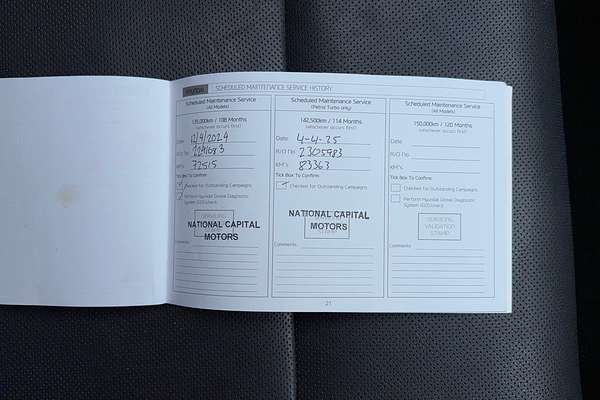 HYUNDAI SCHEDULED MAINTENANCE SERVICE HISTORY
Scheduled Maintenance Service
(All Models)
135,000km / 108 Months
(whichever occurs first)
Date: 12/9/2024
R/O No.
KM's: 72515
Tick Box To Confirm:
Checked for Outstanding Campaigns
Perform Hyundai Global Diagnostic
System (GDS) check
NATIONAL CAPITAL
MOTORS
Comments:
Scheduled Maintenance Service
(Petrol Turbo only)
142,500km / 114 Months
(whichever occurs first)
Date: 4-4-25
R/O No. 2305983
KM's: 83363
Tick Box To Confirm:
Checked for Outstanding Campaigns
NATIONAL CAPITAL
MOTORS
Comments:
Scheduled Maintenance Service
(All Models)
150,000km / 120 Months
(whichever occurs first)
Date:
R/O No.
KM's:
Tick Box To Confirm:
Checked for Outstanding Campaigns
Perform Hyundai Global Diagnostic
System (GDS) check
SERVICING
VALIDATION
STAMP
Comments:
21